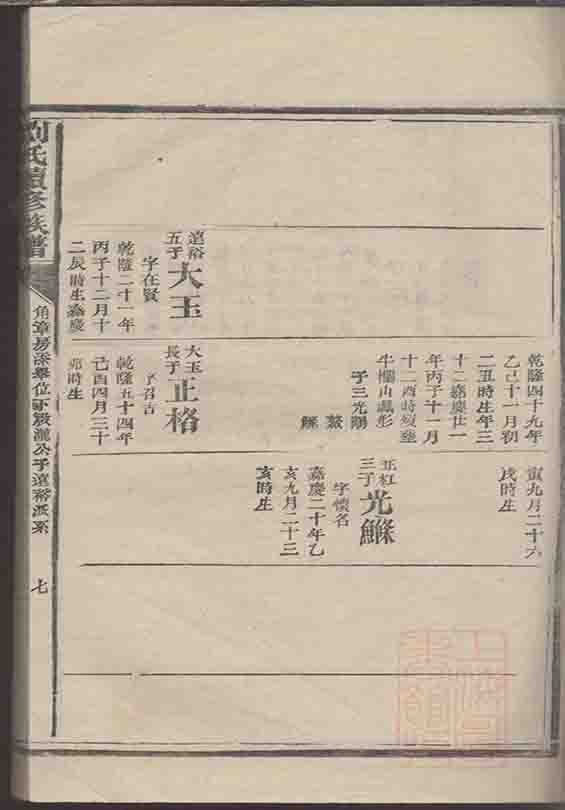 乾隆四十九年
乙巳十一月初
二丑時生年三
十二嘉慶廿一
年丙子十一月
十二酉時
牛欄山
子三光
寅九月二十六
戌時生
正紅
三子
光鮴
字懷名
嘉慶二十年乙
亥九月二十三
亥時生
遠裕
五子
大玉
字在賢
乾隆二十一年
丙子十二月十
二辰時生嘉慶
大玉
長子
正格
字召吉
乾隆五十四年
己酉四月三十
卯時生
劉氏續修族譜
角漳房
公子遠裕派系
七